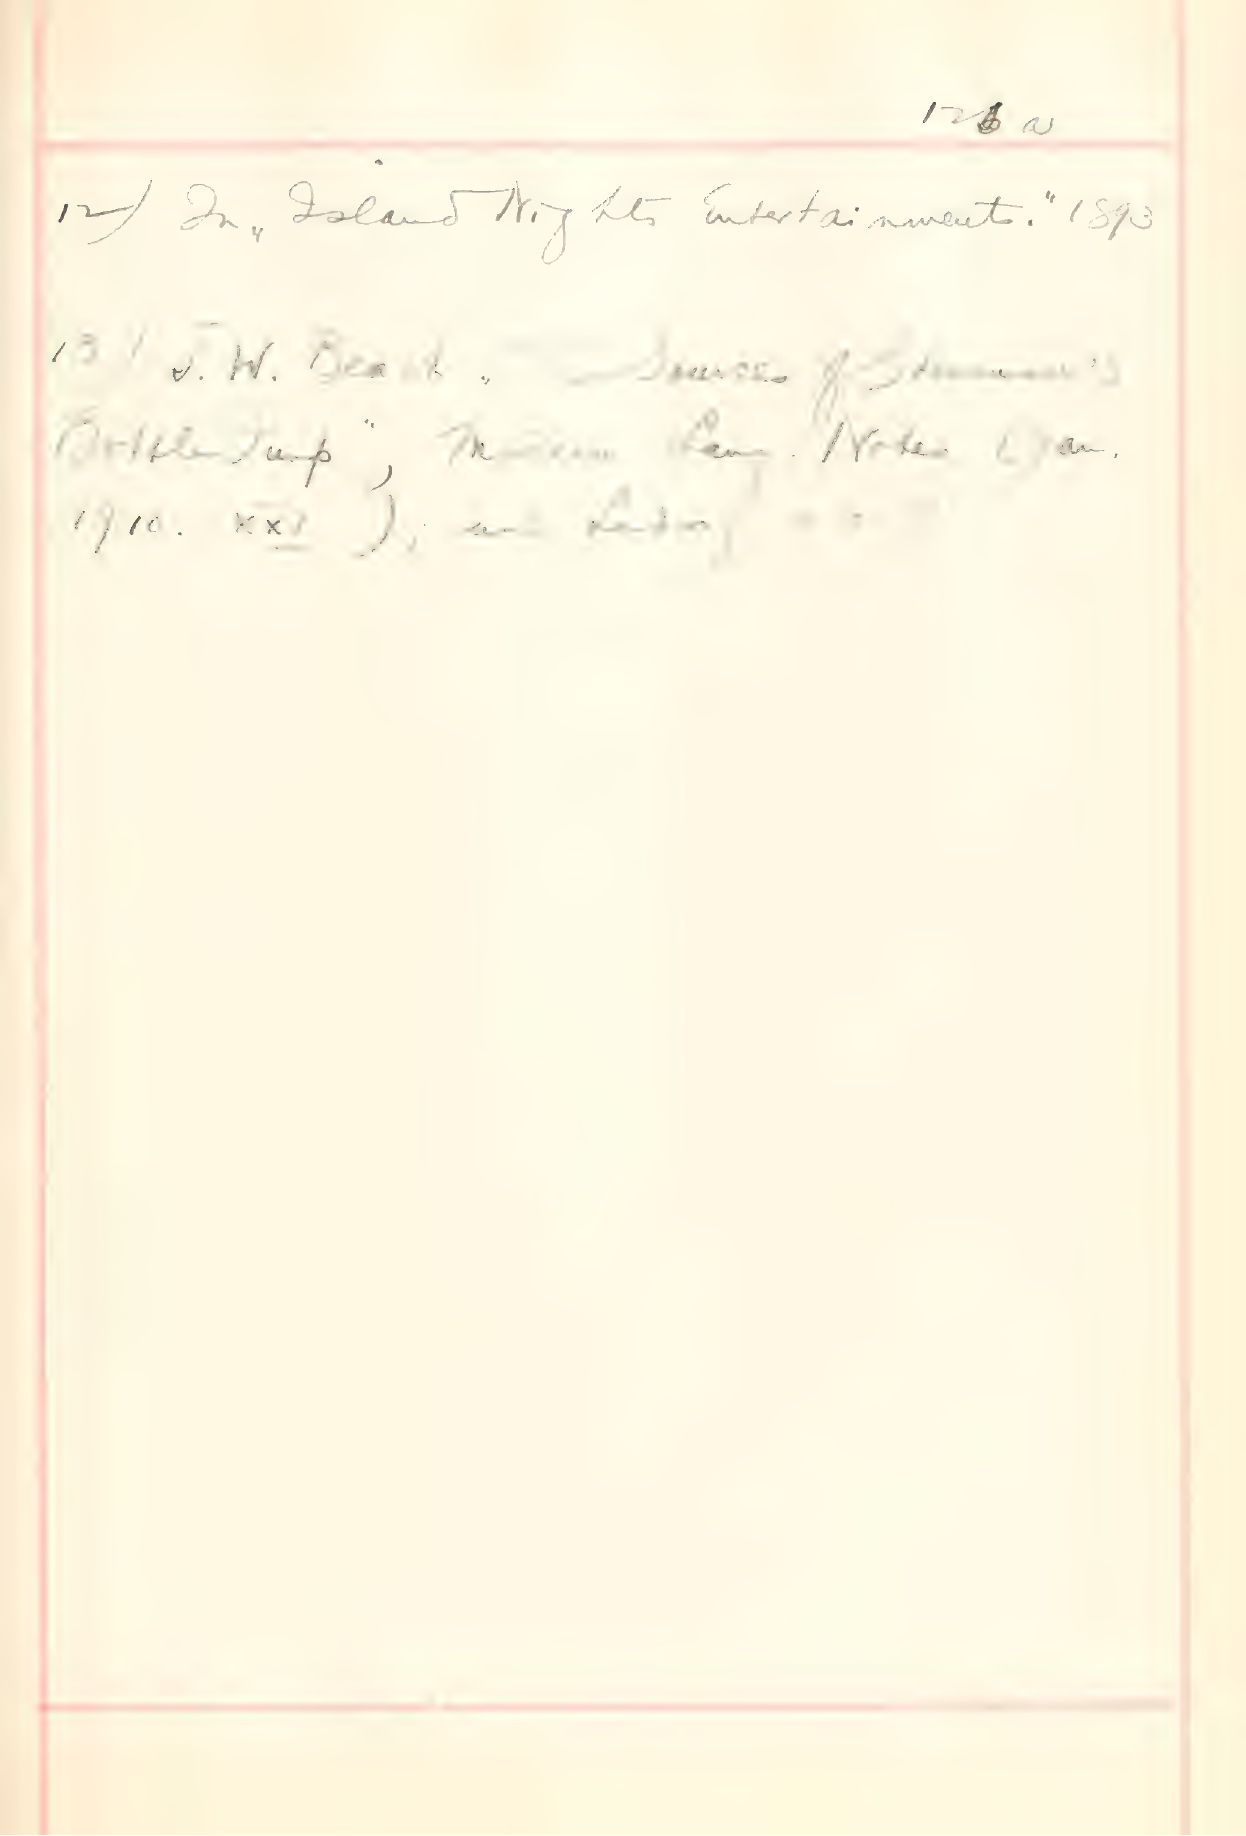 126 a
12) In „Island Nights Entertainments." 1893
13) J. W. Beach. Sources of Stevenson's
Bottle Imp", Modern Lang. Notes (Jan.
1910. XXV), and